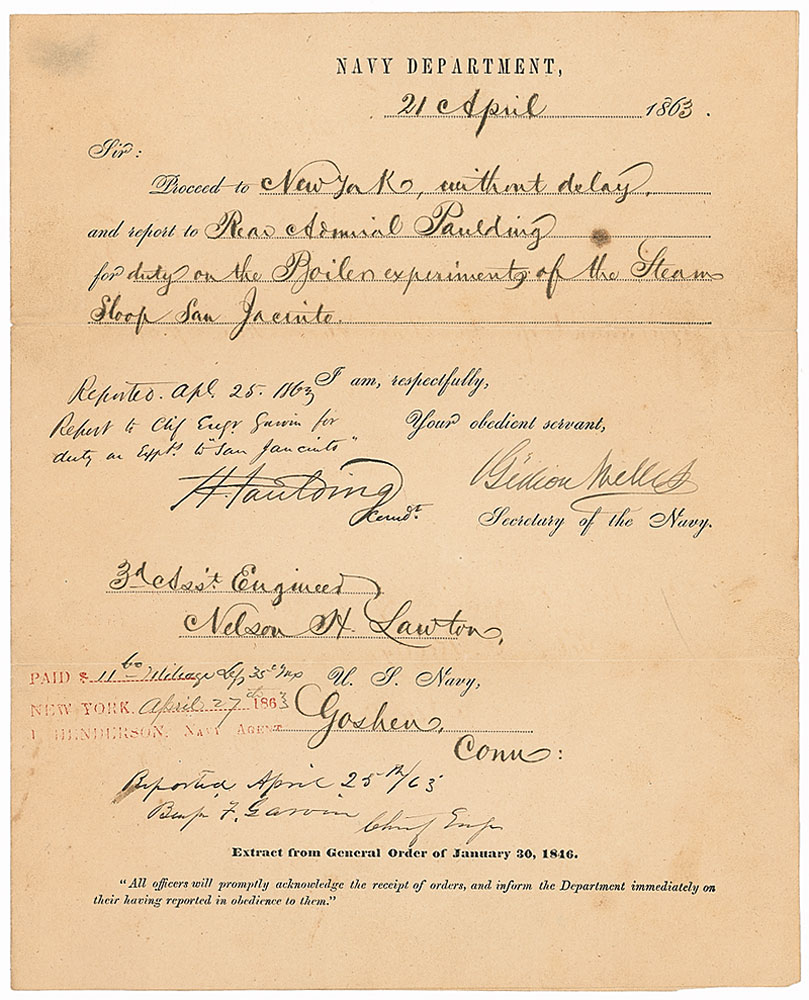 NAVY DEPARTMENT,
21 April 1863.
Sir:
Proceed to New York, without delay,
and report to Rear Admiral Paulding
for duty on the Boiler experiments of the Steam
Sloop San Jacinto.
I am, respectfully,
Your obedient servant,
Gideon Welles
Secretary of the Navy.
Reported. Apl. 25. 1863
Report to Chf Engr Garvin for
duty on Expts. to "San Jancinto"
H. Paulding
Comdt.
3d Ass't Engineer
Nelson H. Lawton,
U. S. Navy,
Goshen,
Conn:
PAID $ 11 60 Mileage
NEW YORK, April 27th 1863
HENDERSON, NAVY AGENT
Reported April 25th/63
Benj F. Garvin
Chief Engr
Extract from General Order of January 30, 1846.
"All officers will promptly acknowledge the receipt of orders, and inform the Department immediately on
their having reported in obedience to them."